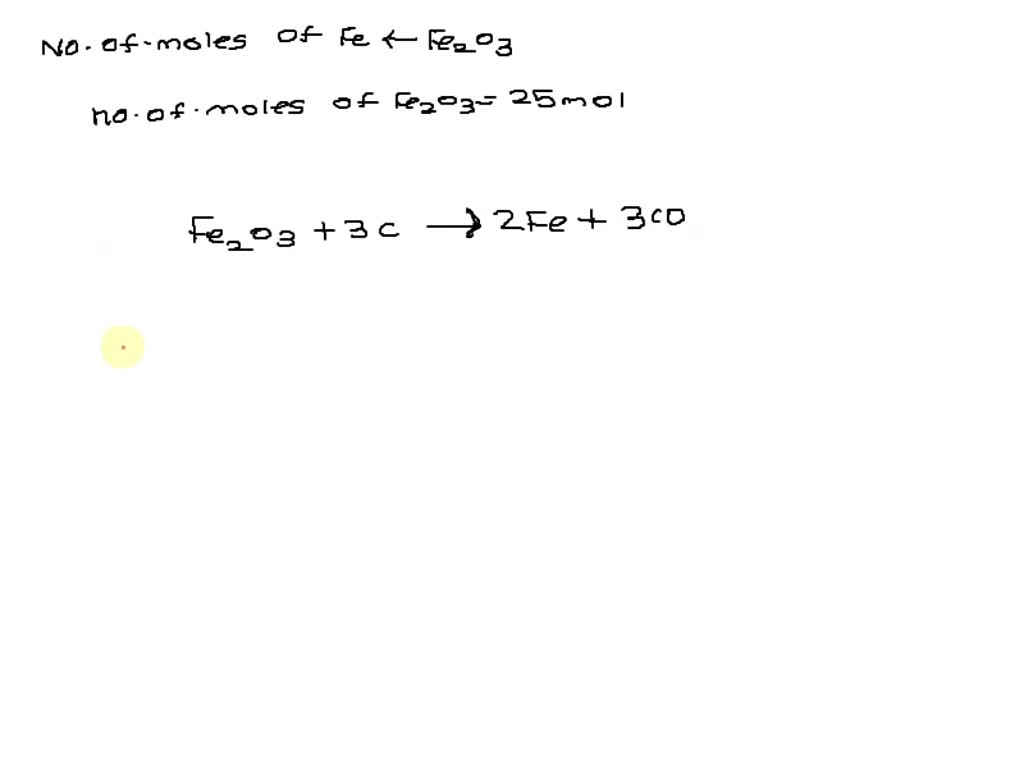 No. of. moles of Fe ← Fe₂O₃
no. of. moles of Fe₂O₃ = 25 mol
Fe₂O₃ + 3C → 2Fe + 3CO